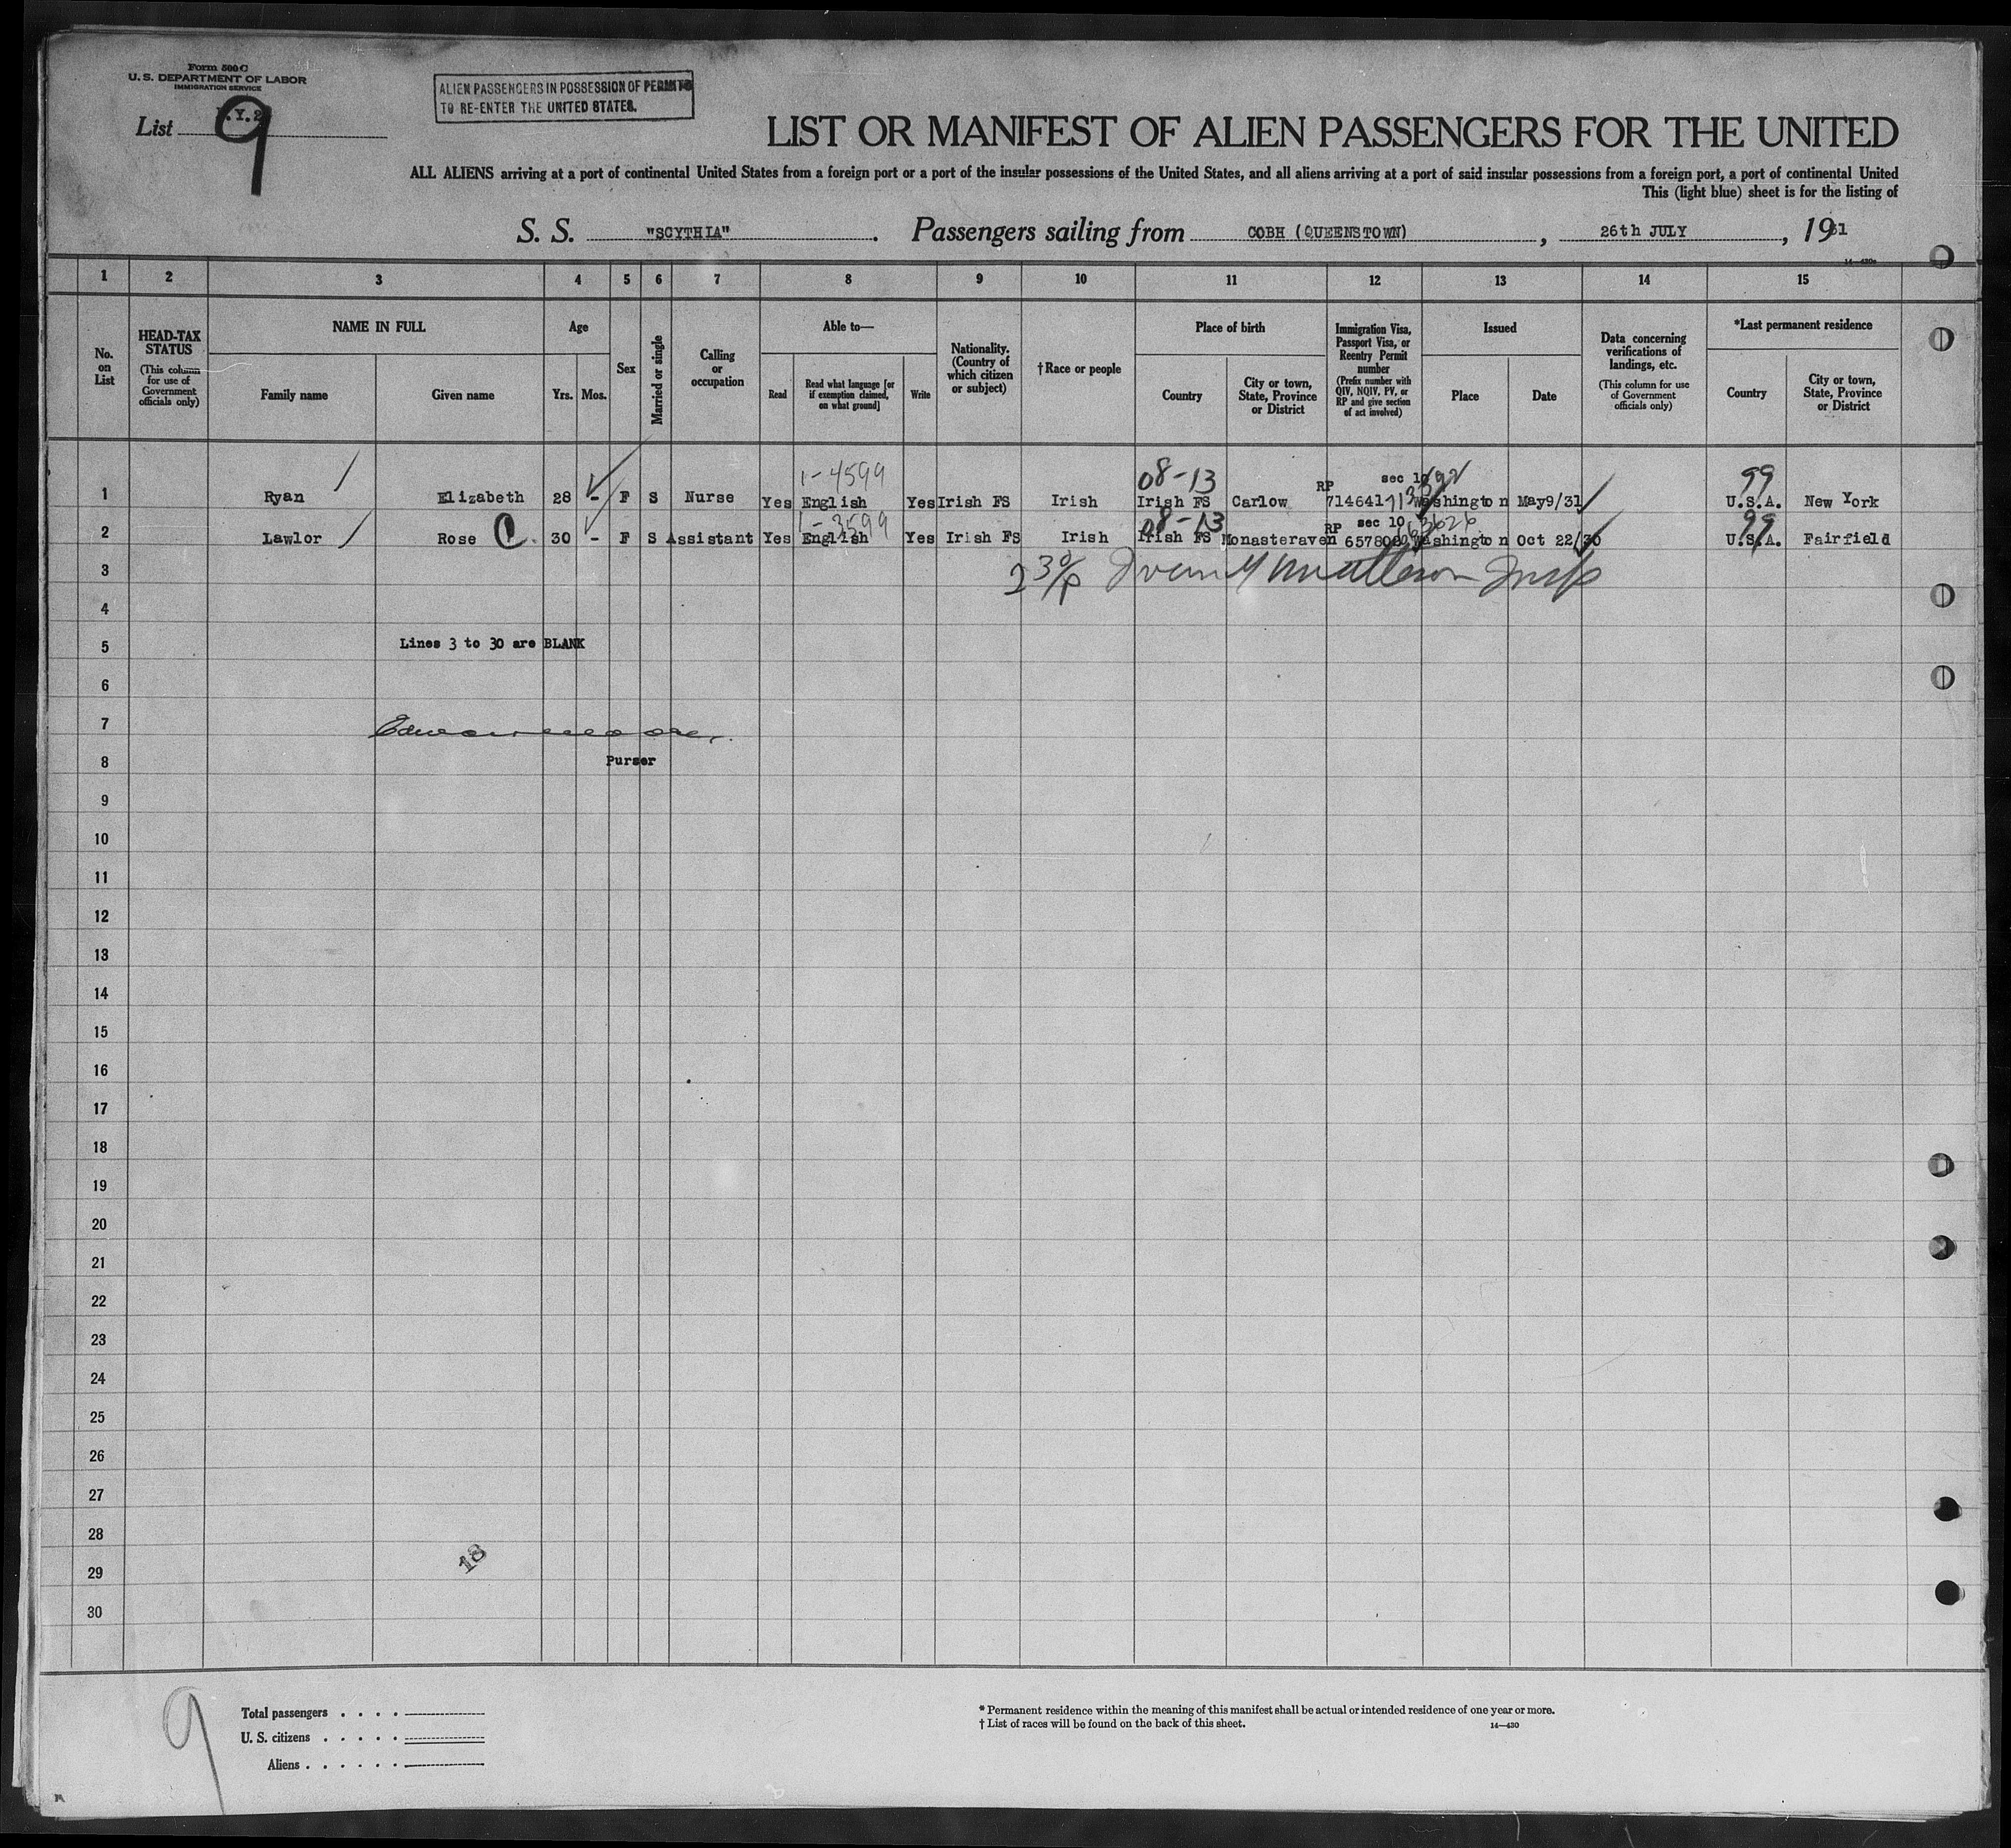 Form 500 C
U. S. DEPARTMENT OF LABOR
IMMIGRATION SERVICE
List 9
ALIEN PASSENGERS IN POSSESSION OF PERMITS
TO RE-ENTER THE UNITED STATES.
LIST OR MANIFEST OF ALIEN PASSENGERS FOR THE UNITED
ALL ALIENS arriving at a port of continental United States from a foreign port or a port of the insular possessions of the United States, and all aliens arriving at a port of said insular possessions from a foreign port, a port of continental United
This (light blue) sheet is for the listing of
S. S. "SCYTHIA". Passengers sailing from COBH (QUEENSTOWN), 26th JULY, 1931
1 2 3 4 5 6 7 8 9 10 11 12 13 14 15
No. on List
HEAD-TAX STATUS
(This column for use of Government officials only)
NAME IN FULL
Family name
Given name
Age
Yrs. Mos.
Sex
Married or single
Calling or occupation
Able to—
Read
Read what language [or if exemption claimed, on what ground]
Write
Nationality. (Country of which citizen or subject)
†Race or people
Place of birth
Country
City or town, State, Province or District
Immigration Visa, Passport Visa, or Reentry Permit number
(Prefix number with QIV, NQIV, PV, or RP and give section of act involved)
Issued
Place
Date
Data concerning verifications of landings, etc.
(This column for use of Government officials only)
*Last permanent residence
Country
City or town, State, Province or District
1-4599 08-13 sec 10 99
1 Ryan Elizabeth 28 - F S Nurse Yes English Yes Irish FS Irish Irish FS Carlow RP 714641 Washington May9/31 U.S.A. New York
1-3599 08-13 sec 10 99
2 Lawlor Rose 30 - F S Assistant Yes English Yes Irish FS Irish Irish FS Monasteraven RP 657800 Washington Oct 22/30 U.S.A. Fairfield
3
4
5 Lines 3 to 30 are BLANK
6
7
8 Purser
9
10
11
12
13
14
15
16
17
18
19
20
21
22
23
24
25
26
27
28
29
18
30
9
Total passengers
U. S. citizens
Aliens
* Permanent residence within the meaning of this manifest shall be actual or intended residence of one year or more.
† List of races will be found on the back of this sheet.
14—430